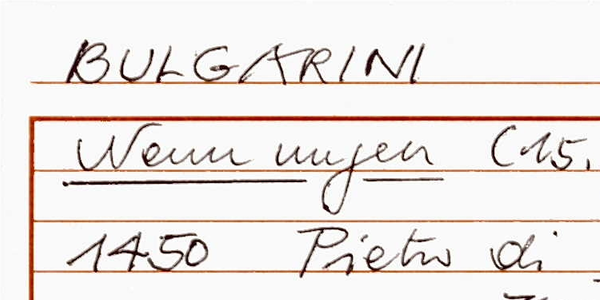 BULGARINI
Nennungen (15.
1450 Pietro di